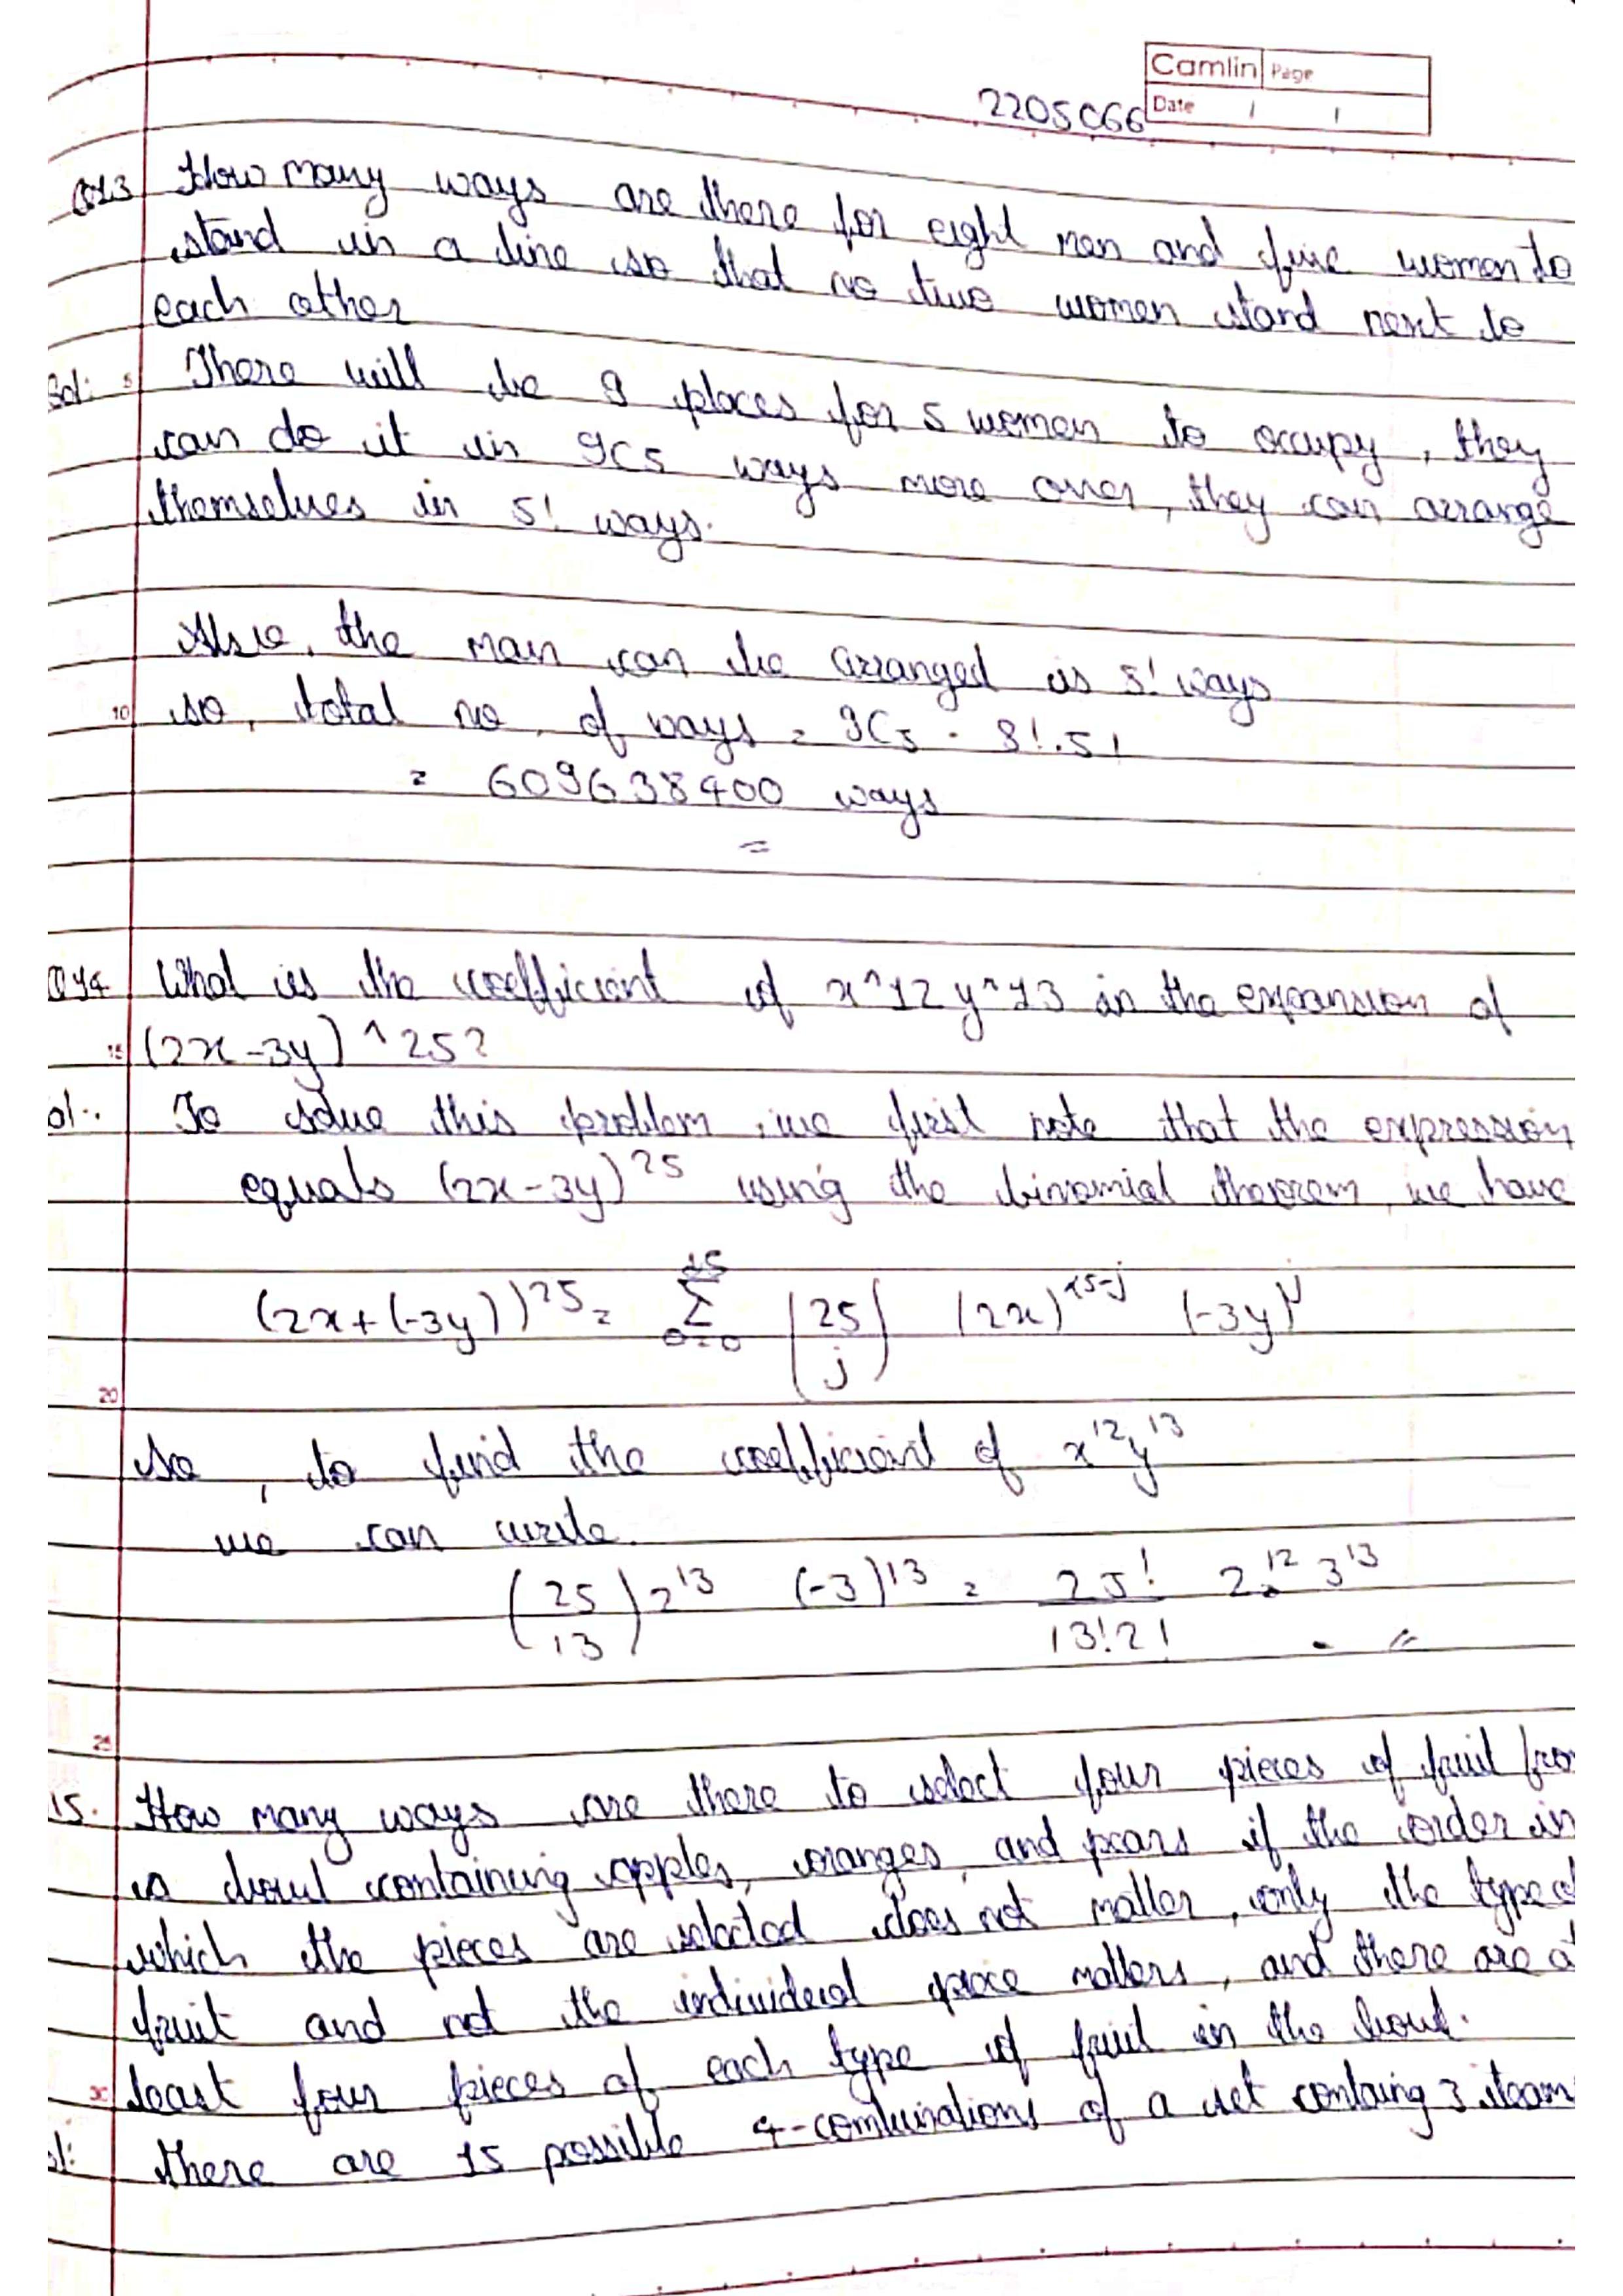 Camlin Page
Date / /
2205066
Q13 How many ways are there for eight men and five women to
stand in a line so that no two women stand next to
each other
Sol: 5 There will be 9 places for 5 women to occupy, they
can do it in 9C5 ways more over, they can arrange
themselves in 5! ways.
Also, the man can be arranged is 8! ways
10 so, total no. of ways = 9C5 . 8!.5!
= 609638400 ways
Q14 What is the coefficient of x^12 y^13 in the expansion of
15 (2x-3y)^25?
ol:. To solve this problem, we first note that the expression
equals (2x-3y)^25 using the binomial theorem, we have
(2x+(-3y))^25 = Σ (25 j) (2x)^25-j (-3y)^j
20
So, to find the coefficient of x^12 y^13
we can write.
(25 13) 2^13 (-3)^13 = 25!/13!2! 2^12 3^13
25
15. How many ways are there to select four pieces of fruit fro
is bowl containing apples, oranges, and pears if the order in
which the pieces are selected does not matter, only the type of
fruit and not the individual piece matters, and there are a
30 least four pieces of each type of fruit in the bowl.
ol: there are 15 possible 4-combinations of a set containg 3 iteam